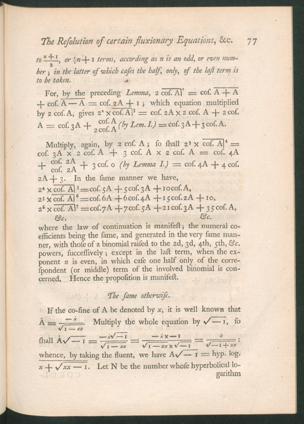 The Resolution of certain fluxionary Equations, &c. 77
to (n+1)/2, or ½n + 1 terms, according as n is an odd, or even num-
ber; in the latter of which cases the half, only, of the last term is
to be taken.
For, by the preceding Lemma, 2 cof. A|² = cof. A + A
+ cof. A — A = cof. 2A + 1; which equation multiplied
by 2 cof. A, gives 2² × cof. A|³ = cof. 2A × 2 cof. A + 2 cof.
A = cof. 3A + cof. A / 2 cof. A (by Lem. I.) = cof. 3A + 3 cof. A.
Multiply, again, by 2 cof. A; so shall 2³ × cof. A|⁴ =
cof. 3A × 2 cof. A + 3 cof. A × 2 cof. A = cof. 4A
+ cof. 2A / + cof. 2A + 3 cof. 0 (by Lemma I.) = cof. 4A + 4 cof.
2A + 3. In the same manner we have,
2⁴ × cof. A|⁵ = cof. 5A + 5 cof. 3A + 10 cof. A,
2⁵ × cof. A|⁶ = cof. 6A + 6 cof. 4A + 15 cof. 2A + 10,
2⁶ × cof. A|⁷ = cof. 7A + 7 cof. 5A + 21 cof. 3A + 35 cof. A,
&c. &c.
where the law of continuation is manifest; the numeral co-
efficients being the same, and generated in the very same man-
ner, with those of a binomial raised to the 2d, 3d, 4th, 5th, &c.
powers, successively; except in the last term, when the ex-
ponent n is even, in which case one half only of the corre-
spondent (or middle) term of the involved binomial is con-
cerned. Hence the proposition is manifest.
The same otherwise.
If the co-sine of A be denoted by x, it is well known that
Ȧ = −ẋ/√(1 − xx). Multiply the whole equation by √−1, so
shall Ȧ√−1 = −ẋ√−1/√(1 − xx) = −ẋ × −1/√(1 − xx × √−1) = ẋ/√(−1 + xx);
whence, by taking the fluent, we have A√−1 = hyp. log.
x + √(xx − 1). Let N be the number whose hyperbolical lo-
garithm